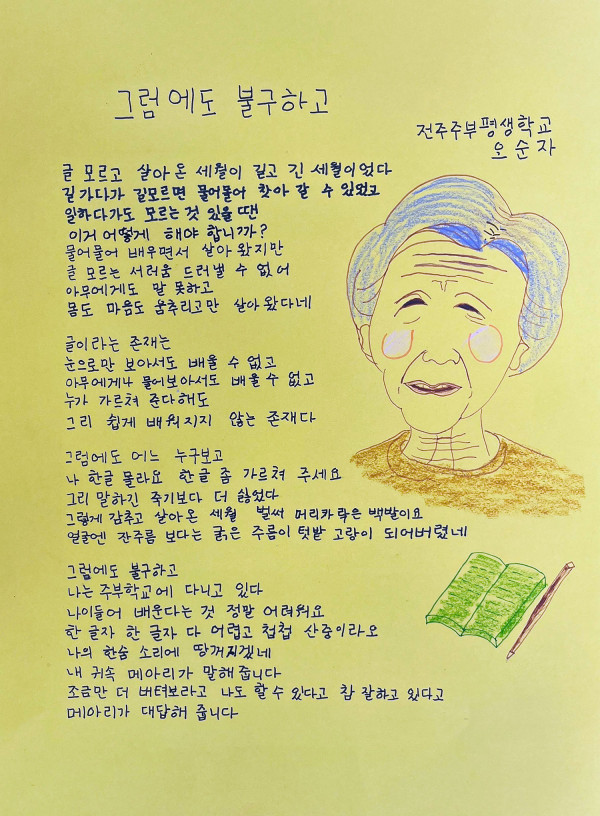 그럼에도 불구하고
전주주부평생학교
오순자
글 모르고 살아온 세월이 길고 긴 세월이었다
길 가다가 길모르면 물어물어 찾아 갈 수 있었고
일하다가도 모르는 것 있을 땐
이거 어떻게 해야 합니까?
물어물어 배우면서 살아 왔지만
글 모르는 서러움 드러낼 수 없어
아무에게도 말 못하고
몸도 마음도 움추리고만 살아 왔다네
글이라는 존재는
눈으로만 보아서도 배울 수 없고
아무에게나 물어보아서도 배울 수 없고
누가 가르쳐 준다해도
그리 쉽게 배워지지 않는 존재다
그럼에도 어느 누구보고
나 한글 몰라요 한글 좀 가르쳐 주세요
그리 말하긴 죽기보다 더 싫었다
그렇게 감추고 살아온 세월 벌써 머리카락은 백발이요
얼굴엔 잔주름 보다는 굵은 주름이 텃밭 고랑이 되어버렸네
그럼에도 불구하고
나는 주부학교에 다니고 있다
나이들어 배운다는 것 정말 어려워요
한 글자 한 글자 다 어렵고 첩첩 산중이라오
나의 한숨 소리에 땅꺼지겠네
내 귀속 메아리가 말해 줍니다
조금만 더 버텨보라고 나도 할 수 있다고 참 잘하고 있다고
메아리가 대답해 줍니다